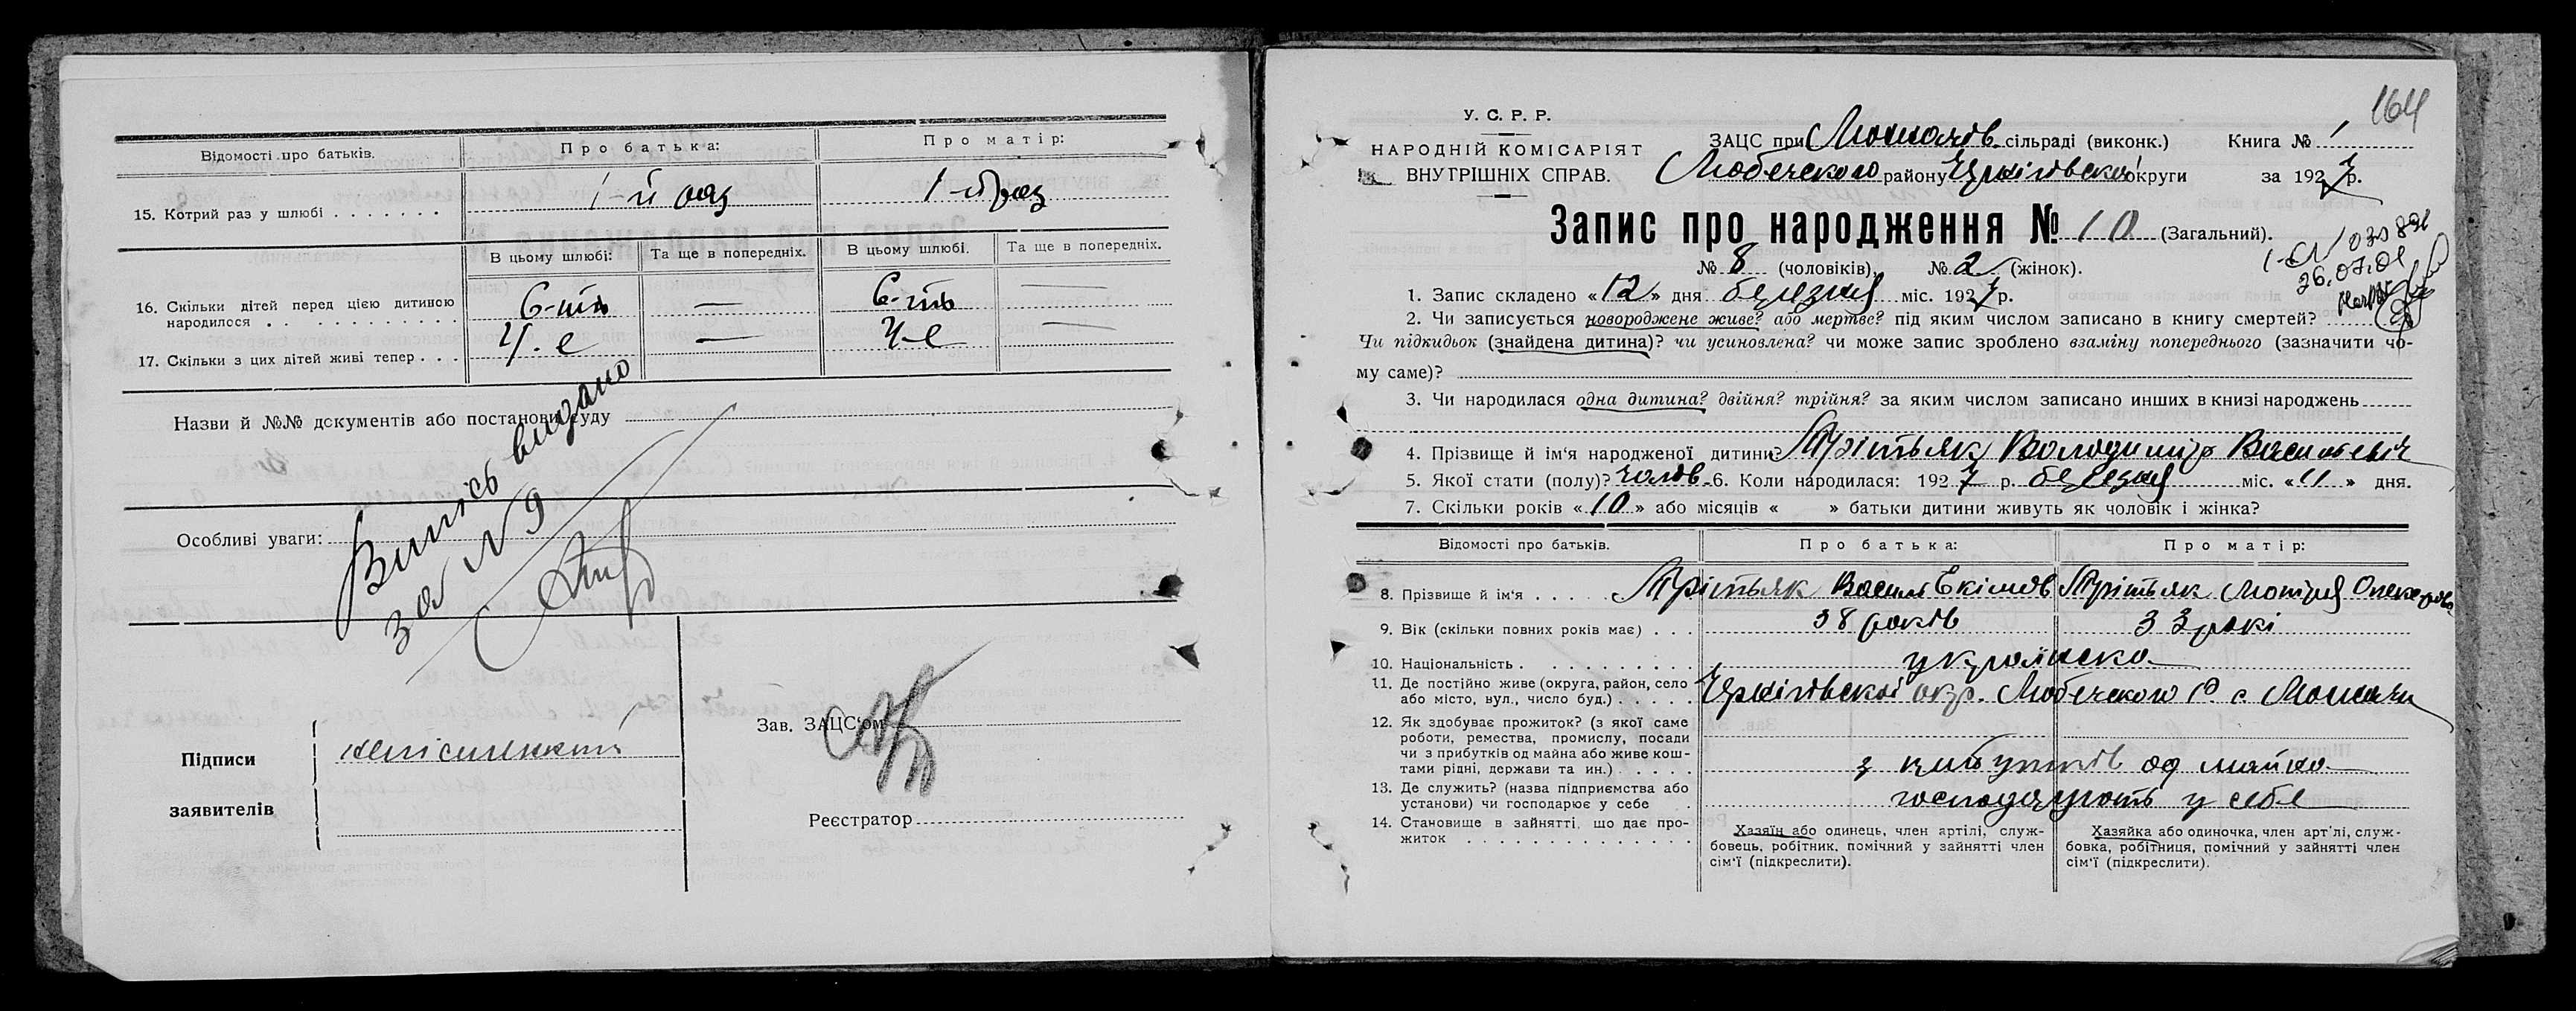 Відомості про батьків.
Про батька:
Про матір:
15. Котрий раз у шлюбі . . . . . . .
1-й раз
1-й раз
В цьому шлюбі:
Та ще в попередніх.
В цьому шлюбі.
Та ще в попередніх.
16. Скільки дітей перед цією дитиною
народилося . . . . . . . . . . .
6-ть
—
6-ть
—
17. Скільки з цих дітей живі тепер . . .
4-е
—
4-е
—
Назви й №№ документів або постанови суду
Випись видано
за N 9
Особливі уваги:
Підписи
заявителів
Зав. ЗАЦС'ом
Реєстратор
164
У. С. Р. Р.
НАРОДНІЙ КОМІСАРІЯТ
ВНУТРІШНІХ СПРАВ.
ЗАЦС при Мохначів. сільраді (виконк.)
Книга № 1
Любечского району Чернігівскоі округи
за 1927 р.
Запис про народження № 10 (Загальний).
№ 8 (чоловіків). № 2 (жінок).
26.07.01
1. Запис складено «12» дня березня міс. 1927 р.
2. Чи записується новороджене живе? або мертве? під яким числом записано в книгу смертей?
Чи підкидьок (знайдена дитина)? чи усиновлена? чи може запис зроблено взаміну попереднього (зазначити чо-
му саме)?
3. Чи народилася одна дитина? двійня? трійня? за яким числом записано инших в книзі народжень
4. Прізвище й ім'я народженої дитини? Трітьяк Володимір Васильевіч
5. Якої стати (полу)? чолов. 6. Коли народилася: 1927 р. березня міс. «11» дня.
7. Скільки років «10» або місяців « » батьки дитини живуть як чоловік і жінка?
Відомості про батьків.
Про батька:
Про матір:
8. Прізвище й ім'я . . . . .
Трітьяк Василь Екімов
Трітьяк Мотря
9. Вік (скільки повних років має) . . .
38 років
33 рокі
10. Національність . . . . . . . . . .
украінска
11. Де постійно живе (округа, район, село
або місто, вул., число буд.) . . . . .
Чернігівскоі окр. Любечского р. с. Мохначи
12. Як здобуває прожиток? (з якої саме
роботи, ремества, промислу, посади
чи з прибутків од майна або живе кош-
тами рідні, держави та ин.) . . . . .
з прибутків од майна
13. Де служить? (назва підприємства або
установи) чи господарює у себе .
господарують у себе
14. Становище в зайнятті, що дає про-
житок . . . . . . . . . . . . . .
Хазяїн або одинець, член артілі, служ-
бовець, робітник, помічний у зайнятті член
сім'ї (підкреслити).
Хазяйка або одиночка, член арт'лі, служ-
бовка, робітниця, помічний у зайнятті член
сім'ї (підкреслити).